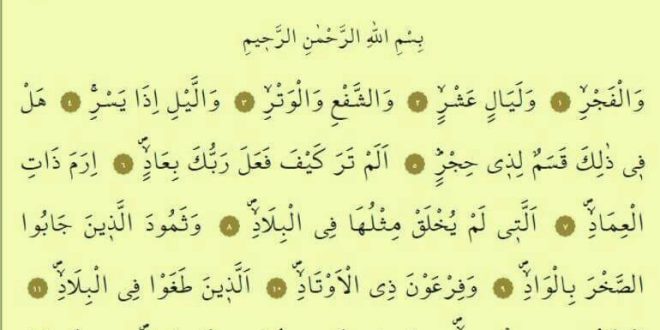 بِسْمِ اللّٰهِ الرَّحْمٰنِ الرَّح۪يمِ
وَالْفَجْرِۙ ١ وَلَيَالٍ عَشْرٍۙ ٢ وَالشَّفْعِ وَالْوَتْرِۙ ٣ وَالَّيْلِ اِذَا يَسْرِۚ ٤ هَلْ
ف۪ي ذٰلِكَ قَسَمٌ لِذ۪ي حِجْرٍۜ ٥ اَلَمْ تَرَ كَيْفَ فَعَلَ رَبُّكَ بِعَادٍۙۖ ٦ اِرَمَ ذَاتِ
الْعِمَادِۙۖ ٧ اَلَّت۪ي لَمْ يُخْلَقْ مِثْلُهَا فِي الْبِلَادِۙۖ ٨ وَثَمُودَ الَّذ۪ينَ جَابُوا
الصَّخْرَ بِالْوَادِۙۖ ٩ وَفِرْعَوْنَ ذِي الْاَوْتَادِۙۖ ١٠ اَلَّذ۪ينَ طَغَوْا فِي الْبِلَادِۙۖ ١١